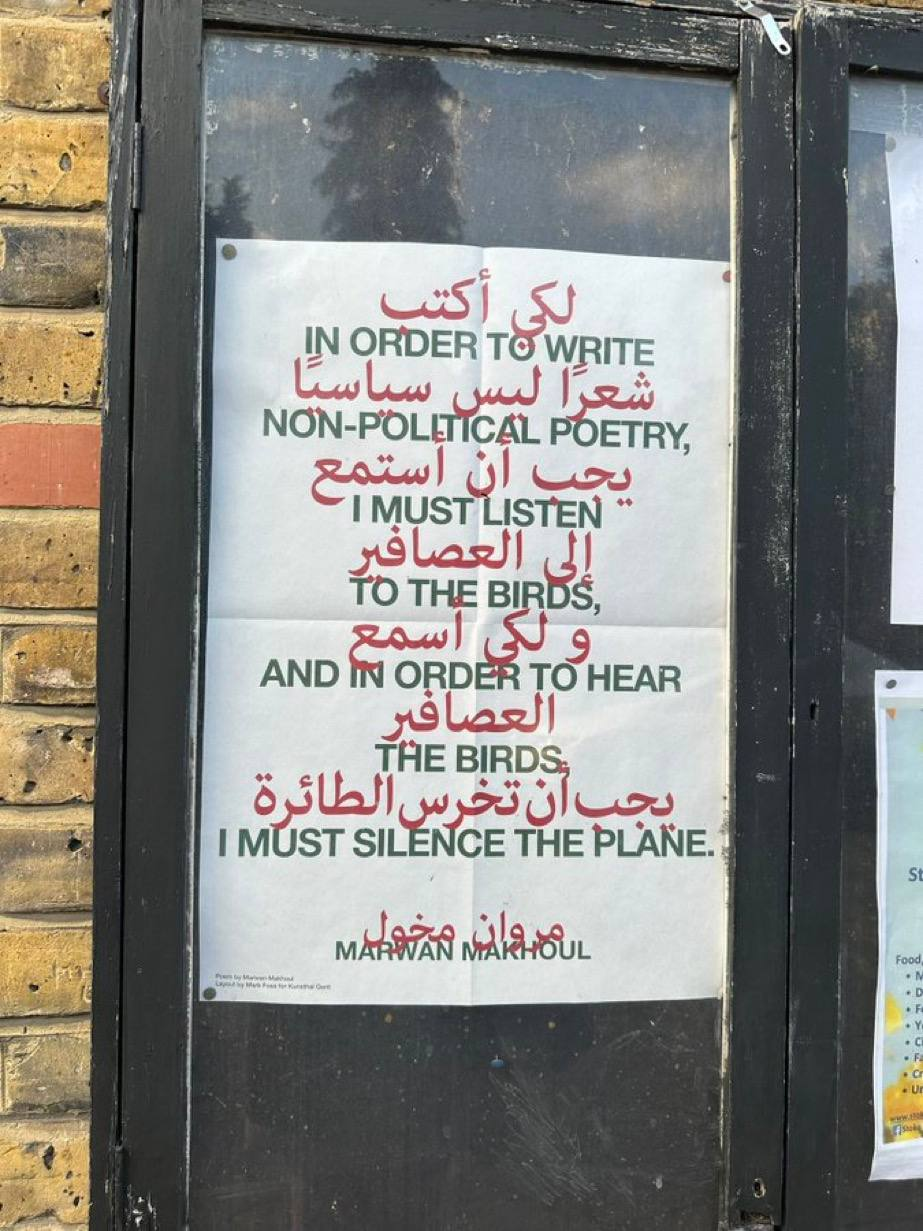 لكي أكتب
IN ORDER TO WRITE
شعرًا ليس سياسيًا
NON-POLITICAL POETRY,
يجب أن أستمع
I MUST LISTEN
إلى العصافير
TO THE BIRDS,
و لكي أسمع
AND IN ORDER TO HEAR
العصافير
THE BIRDS,
يجب أن تخرس الطائرة
I MUST SILENCE THE PLANE.
مروان مخول
MARWAN MAKHOUL
Poem by Marwan Makhoul
Layout by Mark Foss for Kunsthal Gent
St
Food,